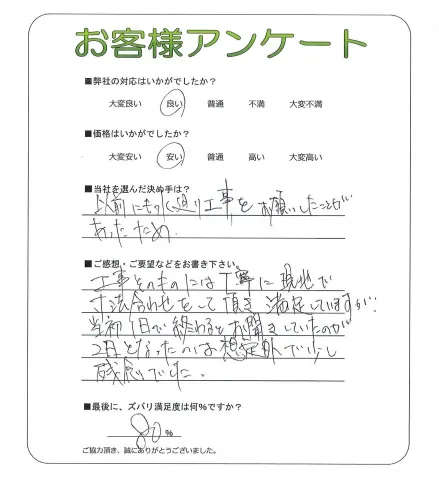 お客様アンケート
■弊社の対応はいかがでしたか？
大変良い 良い 普通 不満 大変不満
■価格はいかがでしたか？
大変安い 安い 普通 高い 大変高い
■当社を選んだ決め手は？
以前にも 工事をお願いしたことが
あったため.
■ご感想・ご要望などをお書き下さい。
工事そのものには丁寧に現地で
寸法合わせをして頂き満足していますが、
当初1日で終わるとお聞きしていたのが
2日となったのは想定外で少し
残念でした。
■最後に、ズバリ満足度は何%ですか？
80%
ご協力頂き、誠にありがとうございました。